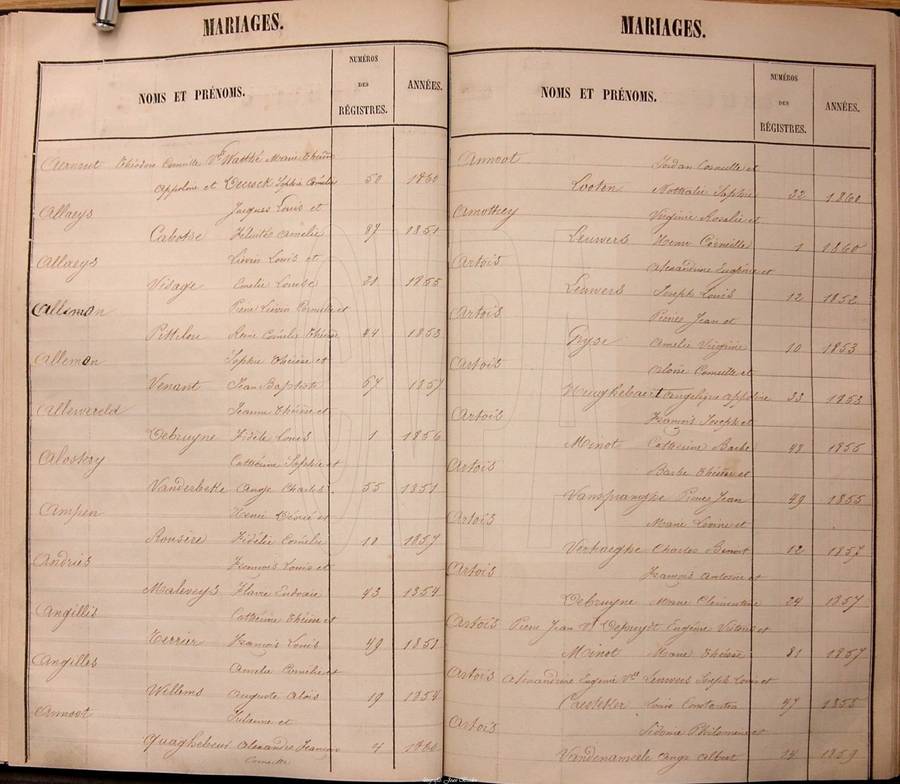 MARIAGES.
NOMS ET PRÉNOMS.
NUMÉROS
DES
RÉGISTRES.
ANNÉES.
Théodore Cornille Vf Waethé Marie Thérèse
Appoline et Deunck Sophie Cornélie 50 1860
Allaeys Jacques Louis et
Cabotse Félicité Amelie 87 1851
Allaeys Liévin Louis et
Visage Emelie Louise 21 1855
Alleman Pierre Liévin Corneille et
Pittilou Rosie Cornélie Thérèse 44 1853
Alleman Sophie Thérèse et
Venant Jean Baptiste 67 1857
Alleweireld Jeanne Thérèse et
Debruyne Fidèle Louis 1 1856
Aloskery Cathérine Sophie et
Vanderbeke Ange Charles 55 1851
Ampen Henri Désiré et
Rousère Fidélie Cornélie 10 1857
Andries François Louis et
Maleveys Flavie Ludovie 43 1854
Angillis Cathérine Thérèse et
Terrier François Louis 49 1851
Angilles Amelie Cornélie et
Willems Auguste Alois 19 1854
Annoot Julienne et
Quaghebeur Alexandre François 4 1860
Corneille
MARIAGES.
NOMS ET PRÉNOMS.
NUMÉROS
DES
RÉGISTRES.
ANNÉES.
Annoot Jordan Corneille et
Looten Nathalie Sophie 32 1860
Amottey Virginie Rosalie et
Leuwers Henri Corneille 1 1860
Artois Alexandrine Eugénie et
Leuwers Joseph Louis 12 1852
Artois Pierre Jean et
Ryse Amelie Virginie 10 1853
Artois Aloise Corneille et
Heughebaert Angelique Appoline 33 1853
Artois François Joseph et
Minot Cathérine Barbe 48 1855
Artois Barbe Thérèse et
Vanspranghe Pierre Jean 49 1855
Artois Marie Lovine et
Verhaeghe Charles Benoit 12 1857
Artois François Antoine et
Debruyne Marie Clémentine 24 1857
Artois Pierre Jean Vf Depuydt Eugénie Victoire et
Minot Marie Thérèse 81 1857
Artois Alexandrine Eugenie Vve Leuwers Joseph Louis et
Caesteker Louis Constantin 47 1855
Artois Sidonie Philomène et
Vandenameele Ange Albert 14 1859